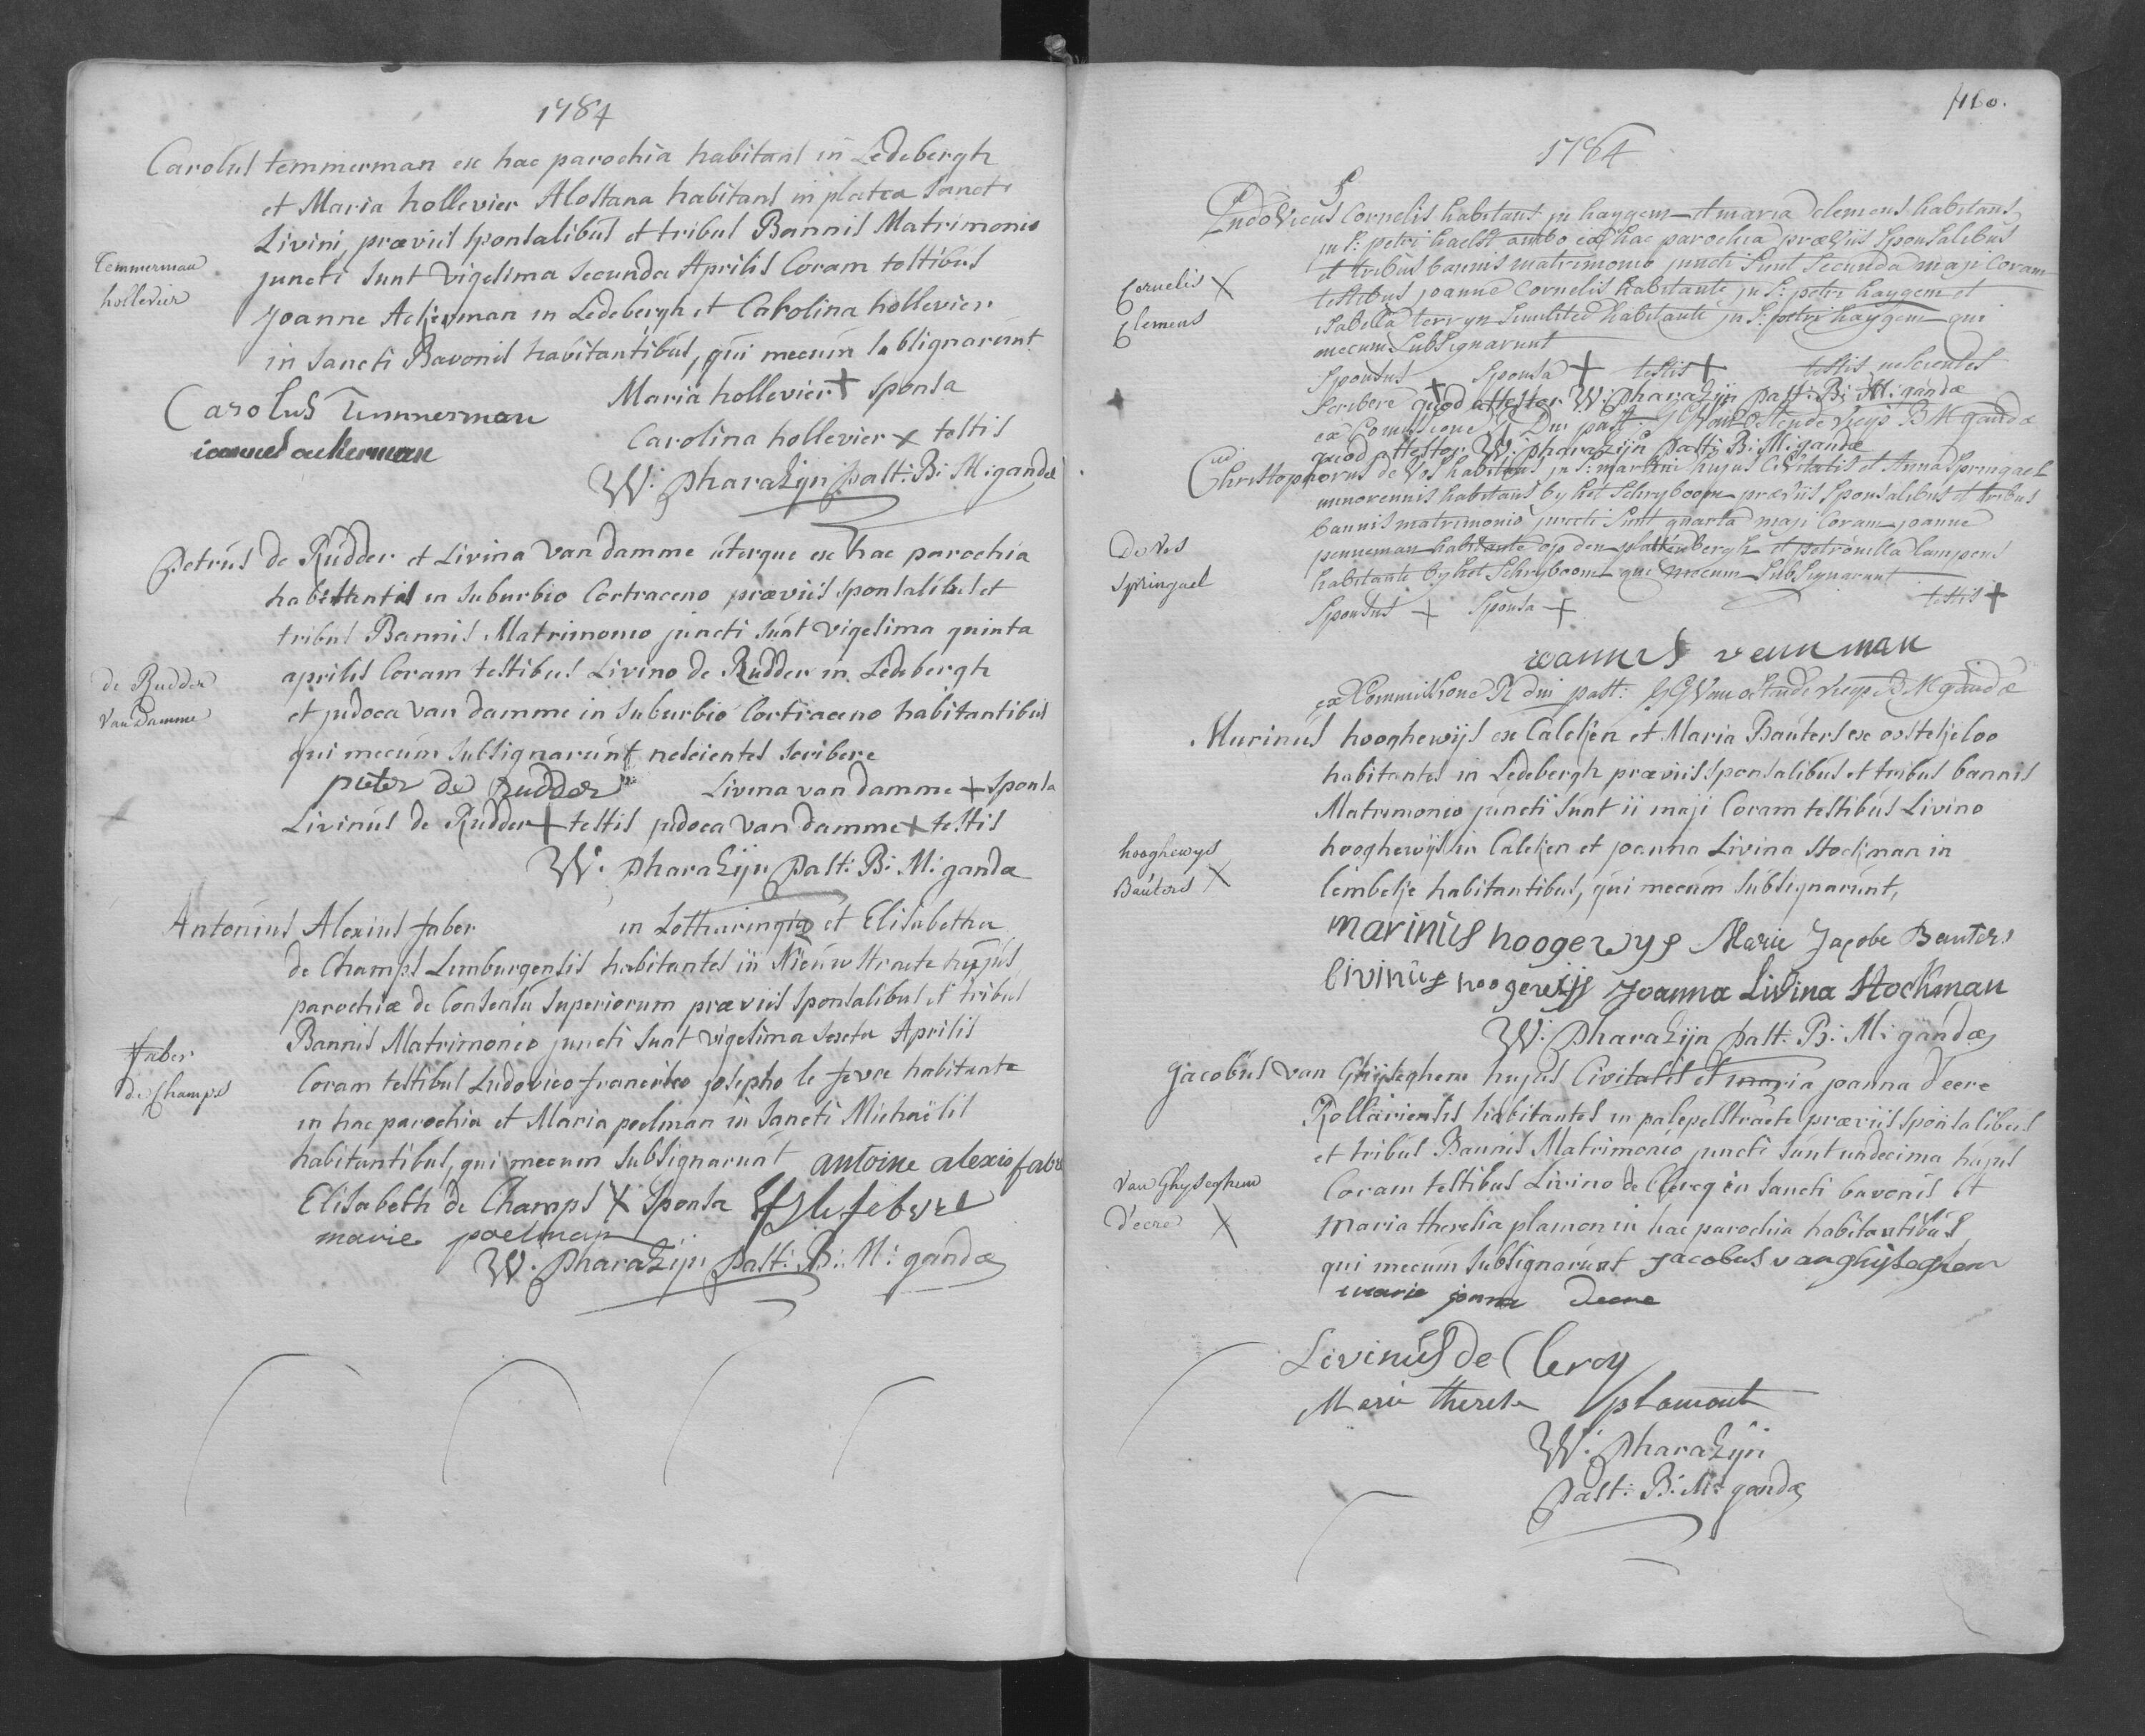 1784
Carolus temmerman ex hac parochia habitans in Ledebergh
et Maria hollevier Alostana habitans in platea Sancti
Livini, præviis sponsalibus et tribus Bannis Matrimonio
Temmerman
hollevier
juncti sunt vigesima secunda Aprilis Coram testibus
Joanne Ackerman in Ledebergh et Carolina hollevier
in Sancti Bavonis habitantibus, qui mecum subsignarunt
Carolus Temmerman
Maria hollevier + sponsa
ioannes ackerman
Carolina hollevier x testis
W: Pharazijn past: B: M: gandæ
Petrus de Rudder et Livina van damme uterque ex hac parochia
habitantes in suburbio Cortraceno præviis sponsalibus et
tribus Bannis Matrimonio juncti sunt vigesima quinta
de Rudder
van Damme
aprilis Coram testibus Livino de Rudder in Ledebergh
et judoca van damme in suburbio Cortraceno habitantibus
qui mecum subsignarunt nescientes scribere
pieter de rudder Livina van damme + sponsa
Livinus de Rudder + testis judoca van damme x testis
W. Pharazijn Past: B: M: gandæ
Antonius Alexius faber in Lotharingia et Elisabetha
de Champs Limburgensis habitantes in Nieuwstraete hujus
parochiæ de Consensu superiorum præviis sponsalibus et tribus
Bannis Matrimonio juncti sunt vigesima sexta Aprilis
faber
de Champs
Coram testibus Ludovico francisco josepho le fevre habitante
in hac parochia et Maria poelman in Sancti Michaëlis
habitantibus, qui mecum subsignarunt antoine alexio fabr
Elisabeth de Champs X sponsa lefebvre
marie poelman
W. Pharazijn Past: B: M: gandæ
1784
Ludovicus Cornelis habitans in haygem et maria Clemens habitans
in S: petri haelst ambo ex hac parochia præviis sponsalibus
et tribus bannis matrimonio juncti sunt secunda maji Coram
Cornelis X
Clemens
testibus joanne Cornelis habitante in S: petri haygem et
isabella terryn similiter habitante in S: petri haygem qui
mecum subsignarunt
Sponsus + Sponsa + testis + testis nescientes
scribere quod attestor W: Pharazijn Past: B: M: gandæ
ex Comissione R Dni past: Van ostende vicep B M gandæ
quod attestor W: Pharazijn Past: B: M: gandæ
Christophorus de Vos habitans in S: martini hujus Civitatis et Anna Springael
minorennis habitans by het Schryboom præviis sponsalibus et tribus
bannis matrimonio juncti sunt quarta maji Coram joanne
De Vos
Springael
penneman habitante op den plattenbergh et petronella lampens
habitante by het Schryboom qui mecum subsignarunt
Sponsus + Sponsa + testis +
ioannes venneman
ex Commissione R dni past: Van ostende vicep B M gandæ
Marinus hooghewijs ex Calcken et Maria Bauters ex oosteekeloo
habitantes in Ledebergh præviis sponsalibus et tribus bannis
Matrimonio juncti sunt ii maji Coram testibus Livino
hooghewys
Bauters X
hooghewijs in Calcken et joanna Livina Stockman in
lembeke habitantibus, qui mecum subsignarunt,
marinius hoogewys Marie Jacobe Bauters
livinus hoogewijs Joanna Livina Stockman
W: Pharazijn Past: B: M: gandæ
Jacobus van Ghyseghem hujus Civitatis et maria joanna d'eere
Rollariensis habitantes in palepelstraete præviis sponsalibus
et tribus Bannis Matrimonio juncti sunt undecima hujus
Van Ghyseghem
d'eere X
Coram testibus Livino de Clercq in sancti bavonis et
Maria theresia plamon in hac parochia habitantibus
qui mecum subsignarunt jacobus van ghyseghem
marie joanna deere
Livinus de Clercq
Marie therese plamont
W: Pharazijn
Past: B: M: gandæ